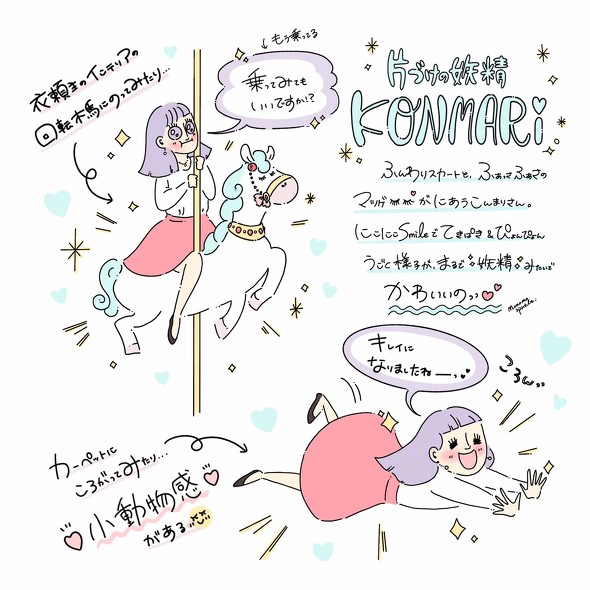 衣頼主のインテリアの
回転木馬にのってみたり…
↓もう乗ってる
乗ってみても
いいですか!?
片づけの妖精
KONMARi
ふんわりスカートと、ふぁっさふぁさの
マツゲがにあうこんまりさん。
にこにこSmileでてきぱき&ぴょんぴょん
うごく様子が、まるで妖精みたいで
かわいいのっっ
キレイに
なりましたねーっ
ころんっ
カーペットに
ころがってみたり…
小動物感
がある